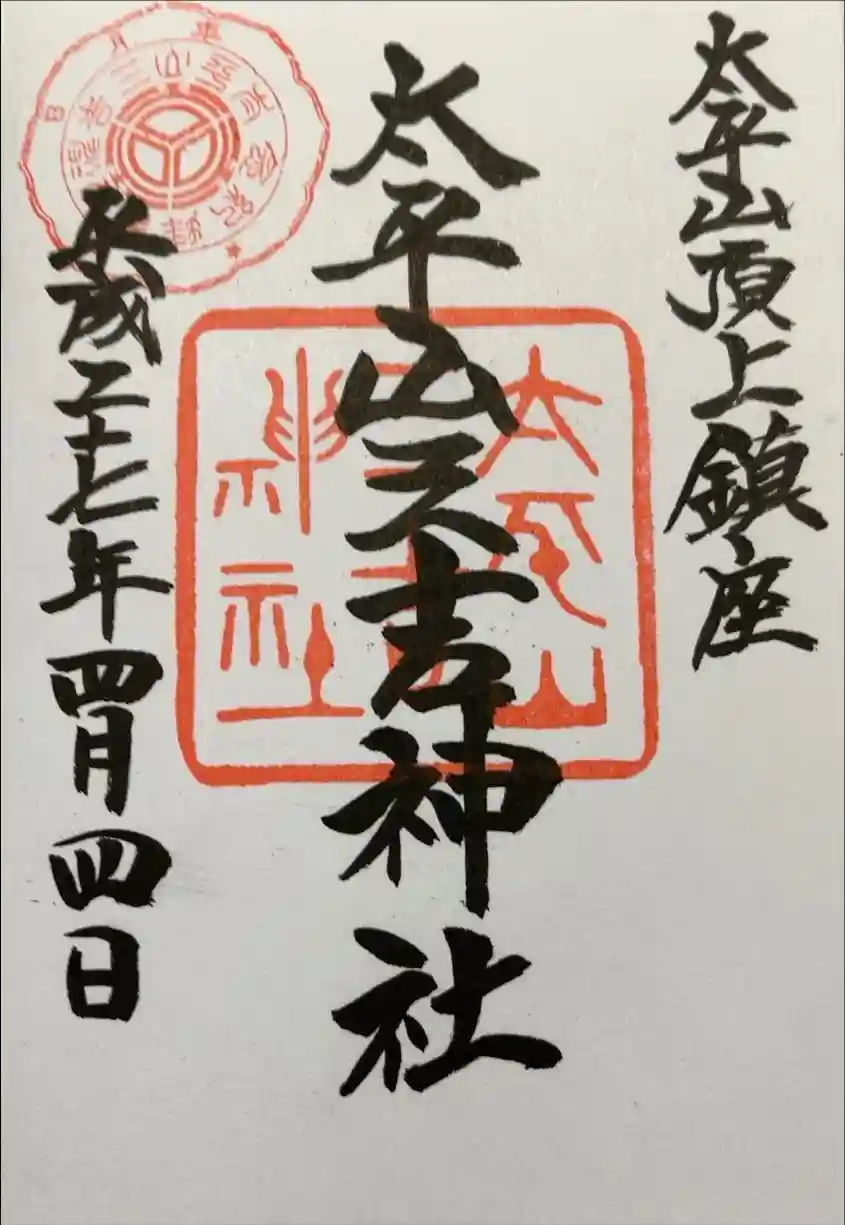 太平山頂上鎮座
太平山三吉神社
平成二十七年四月四日
太平山
三吉
神社